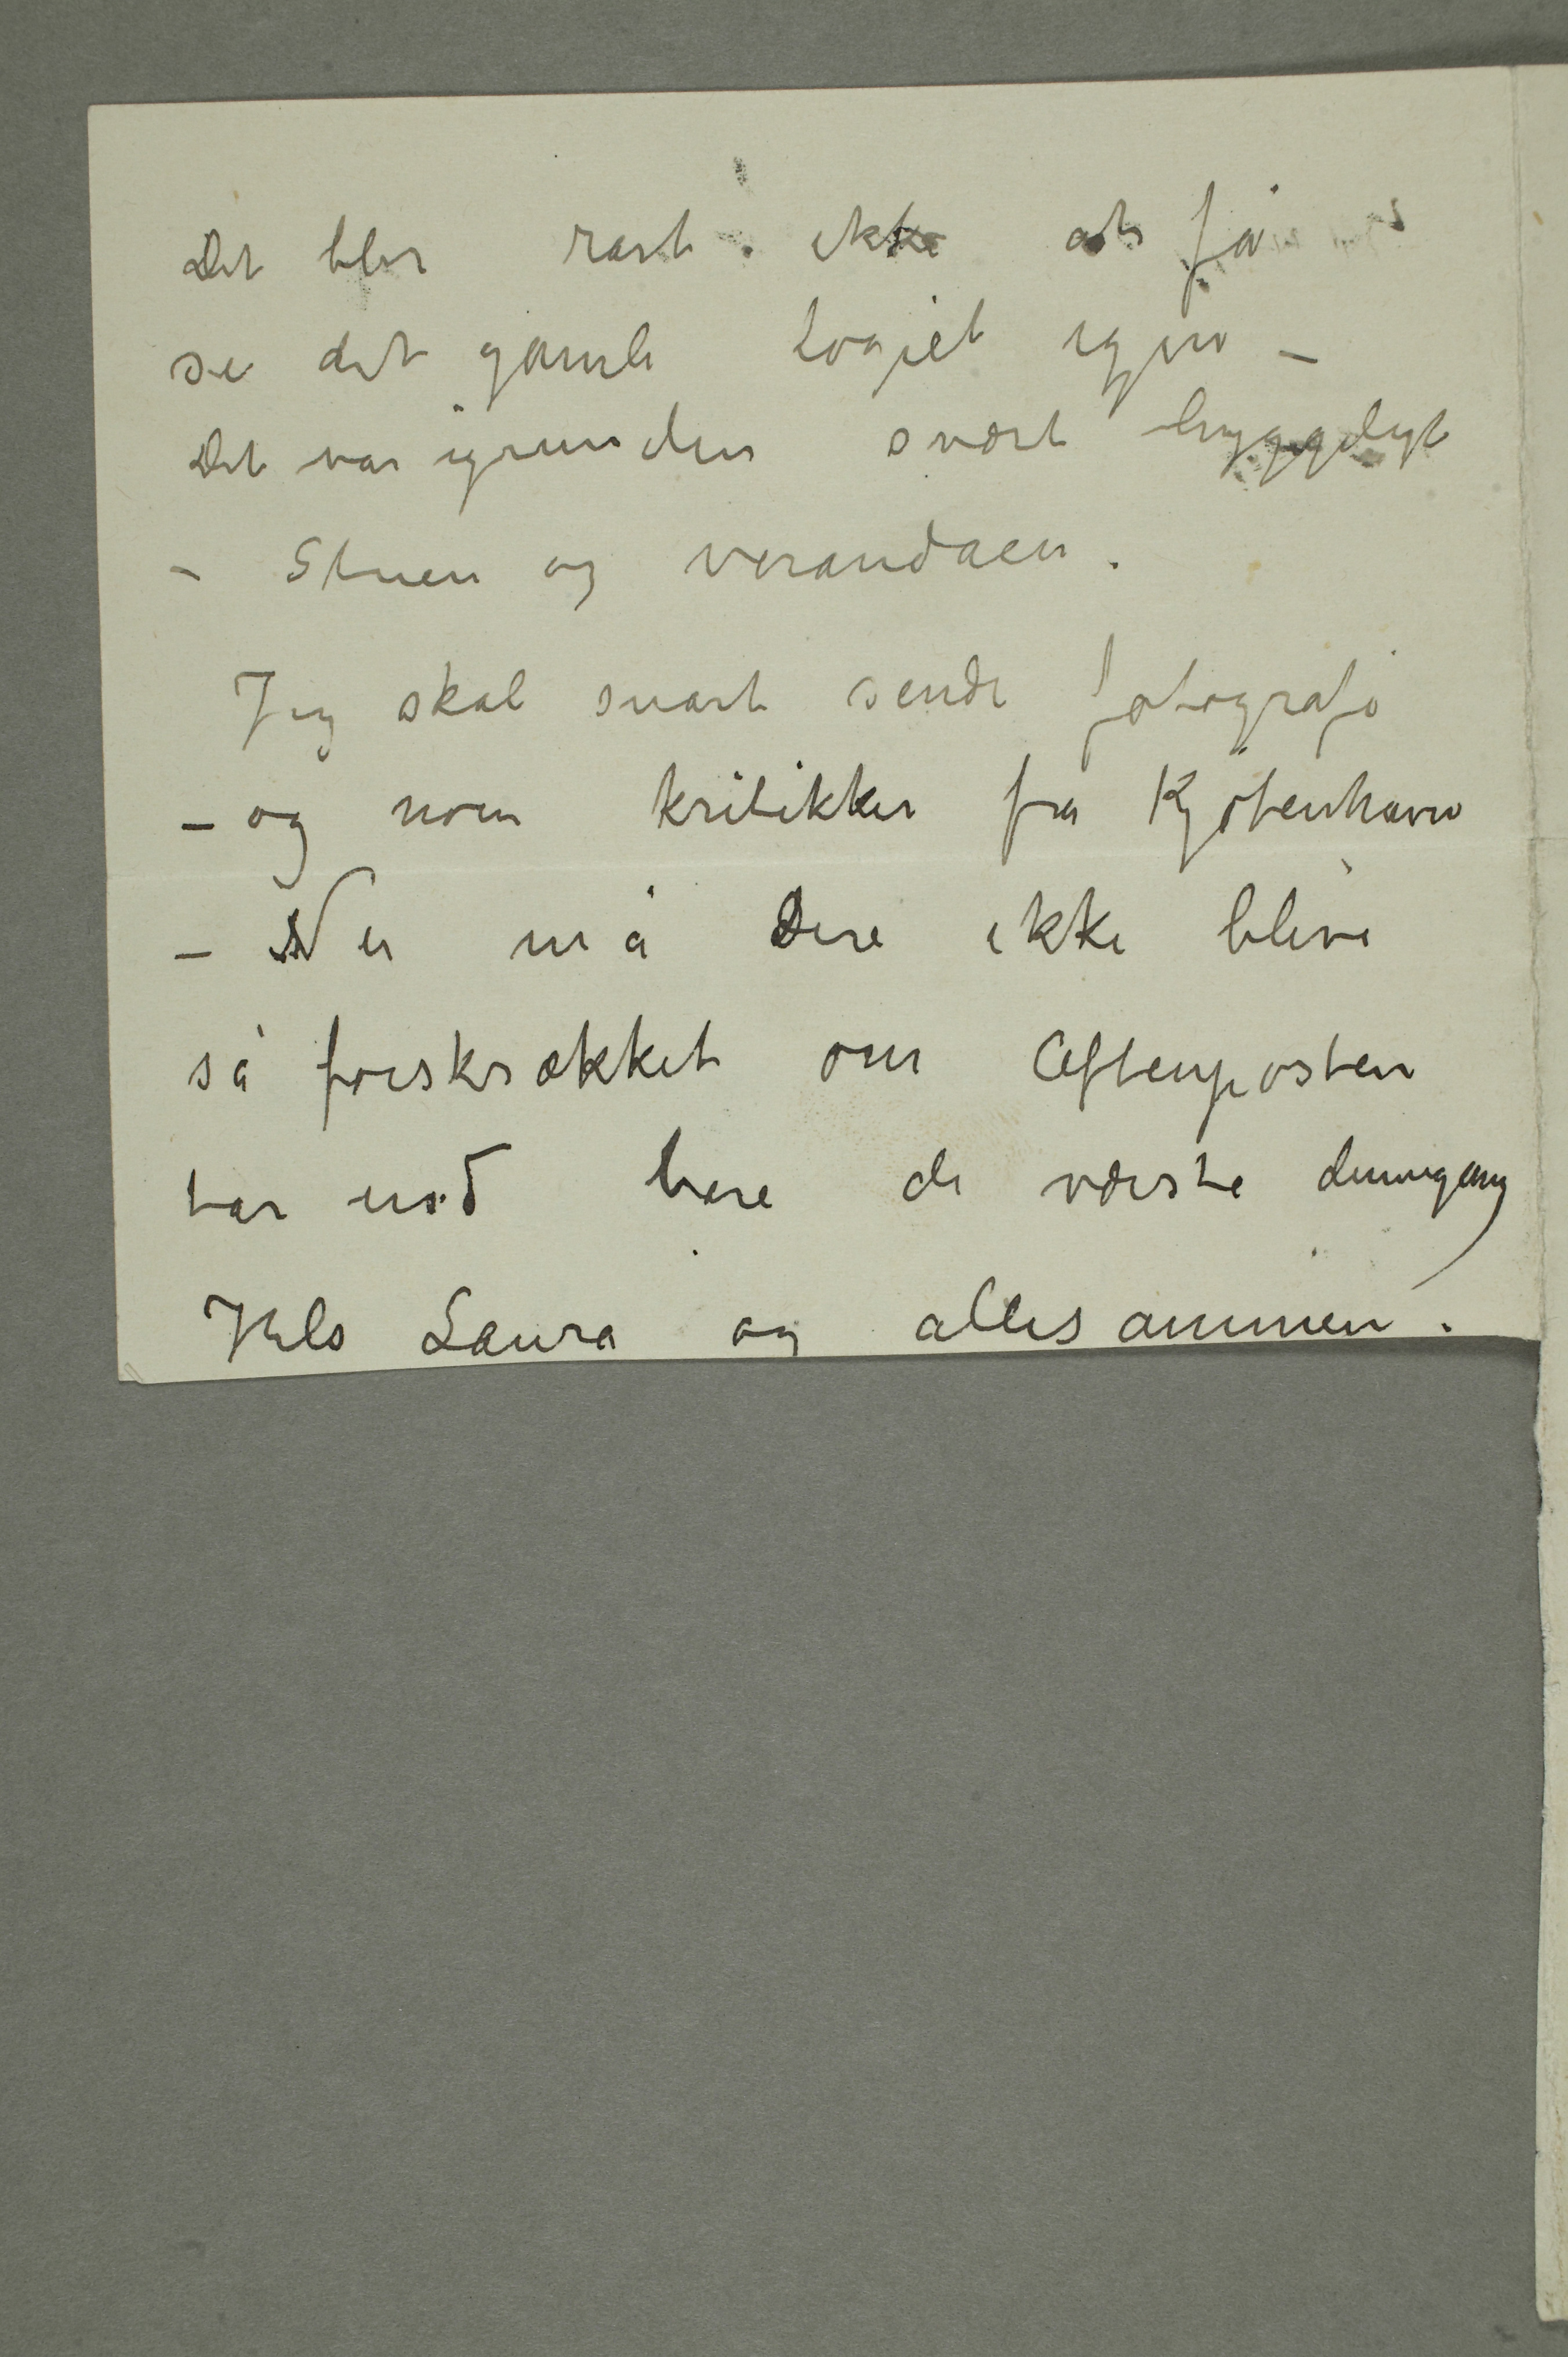 Det blir rart ikke at få
se det gamle logiet igjen –
Det var igrunden svært hyggeligt
– Stuen og verandaen.
Jeg skal snart sende fotografi
– og noen kritikker fra Kjøbenhavn
– Nu må Dere ikke blive
så forskrækket om Aftenposten
tar med bare de værste denngang
Hils Laura og allesammen.